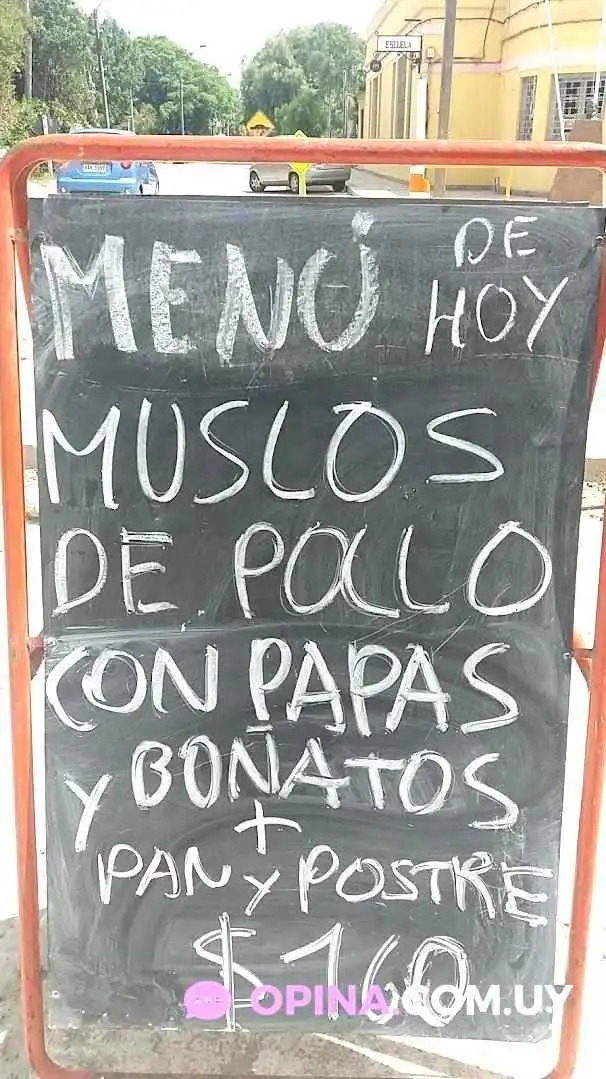 ESCUELA
MENÚ DE HOY
MUSLOS
DE POLLO
CON PAPAS
Y BOÑATOS
+
PAN Y POSTRE
$160
OPINA.COM.UY